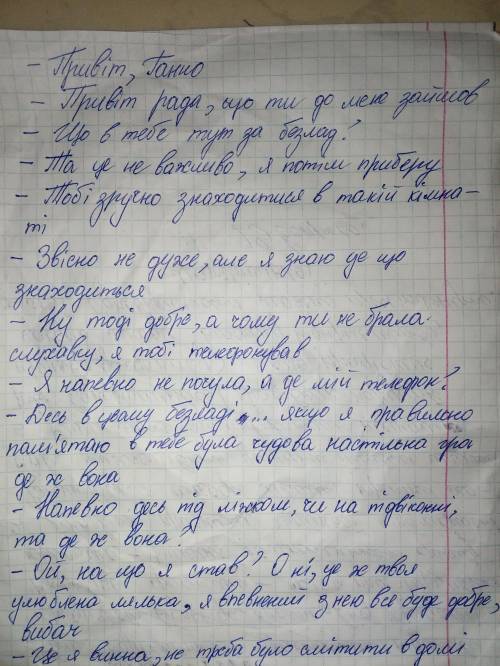 - Привіт, Ганно
- Привіт рада, що ти до мене зайшов
- Що в тебе тут за безлад?
- Та це не важливо, я потім приберу
- Тобі зручно знаходитися в такій кімна-
ті
- Звісно не дуже, але я знаю де що
знаходиться
- Ну тоді добре, а чому ти не брала
слухавку, я тобі телефонував
- Я напевно не почула, а де мій телефон?
- Десь в цьому безладі... якщо я правильно
пам'ятаю в тебе була чудова настільна гра
де ж вона
- Напевно десь під ліжком, чи на підвіконні,
та де ж вона?
- Ой, на що я став? О ні, це ж твоя
улюблена лялька, я впевнений з нею все буде добре,
вибач
- Це я винна, не треба було смітити в домі